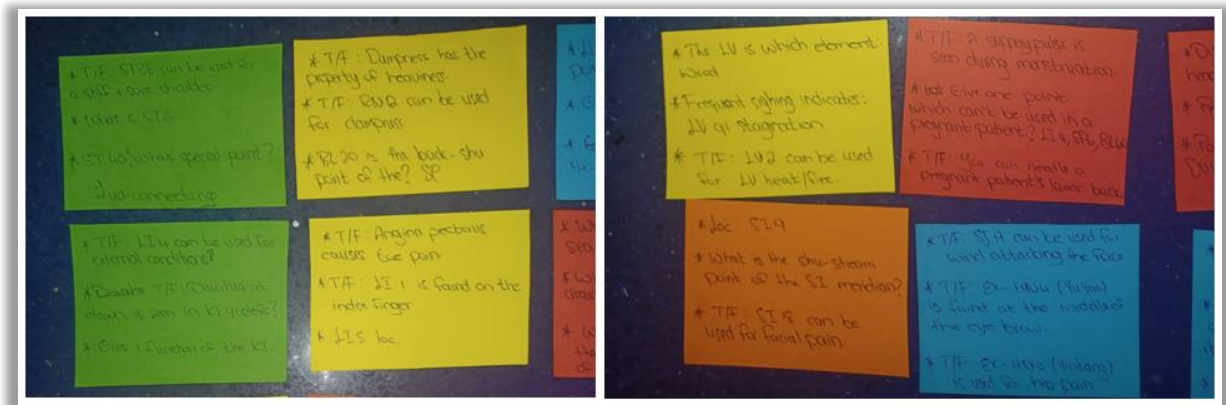 * T/F ST38 can be used for
a stiff + sore shoulder
* What is ST6
* ST40 what special point?
Luo-connecting
* T/F: Dampness has the
property of heaviness.
* T/F: can be used
for dampness.
* BL20 is the back-shu
point of the? SP
* T/F: LI4 can be used for
external conditions?
* T/F: Diarrhea at
dawn is seen in KI qi defic?
* Give 1 function of the KI.
* T/F: Angina pectoris
causes Eye pain.
* T/F: LI 1 is found on the
index finger
* LI5 loc.
* The LV is which element:
Wood
* Frequent sighing indicates:
LV qi stagnation
* T/F: LV2 can be used
for LV heat/fire.
* T/F: A slippery pulse is
seen during menstruation.
* Give one point
which can't be used in a
pregnant patient? LI4, SP6,
* T/F You can needle a
pregnant patient's lower back
* Loc SI9
* What is the shu-stream
point of the SI meridian?
* T/F: SI 8 can be
used for facial pain.
* T/F: can be used for
wind attacking the face
* T/F: Ex-HN4 (Yuyao)
is found at the middle of
the eye brow.
* T/F Ex-HN3 (Yintang)
is used for hip pain